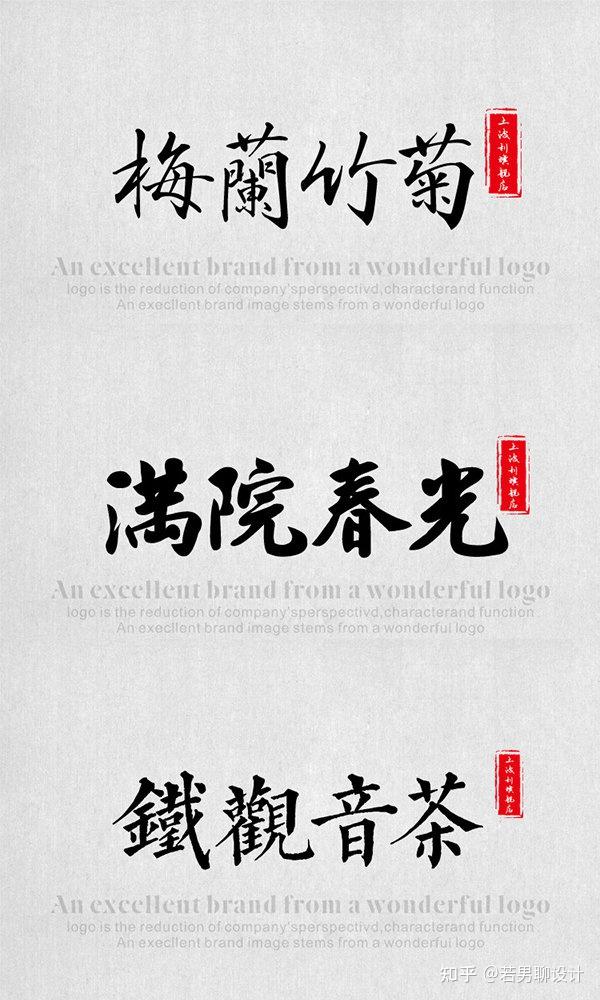 梅蘭竹菊
An excellent brand from a wonderful logo
logo is the reduction of company'sperspectivd,characterand function
An execllent brand image stems from a wonderful logo
满院春光
An excellent brand from a wonderful logo
logo is the reduction of company'sperspectivd,characterand function
An execllent brand image stems from a wonderful logo
鐵觀音茶
An excellent brand from a wonderful logo
logo is the reduction of company'sperspectivd,characterand function
An execllent brand image stems from a wonderful logo
知乎 @若男聊设计